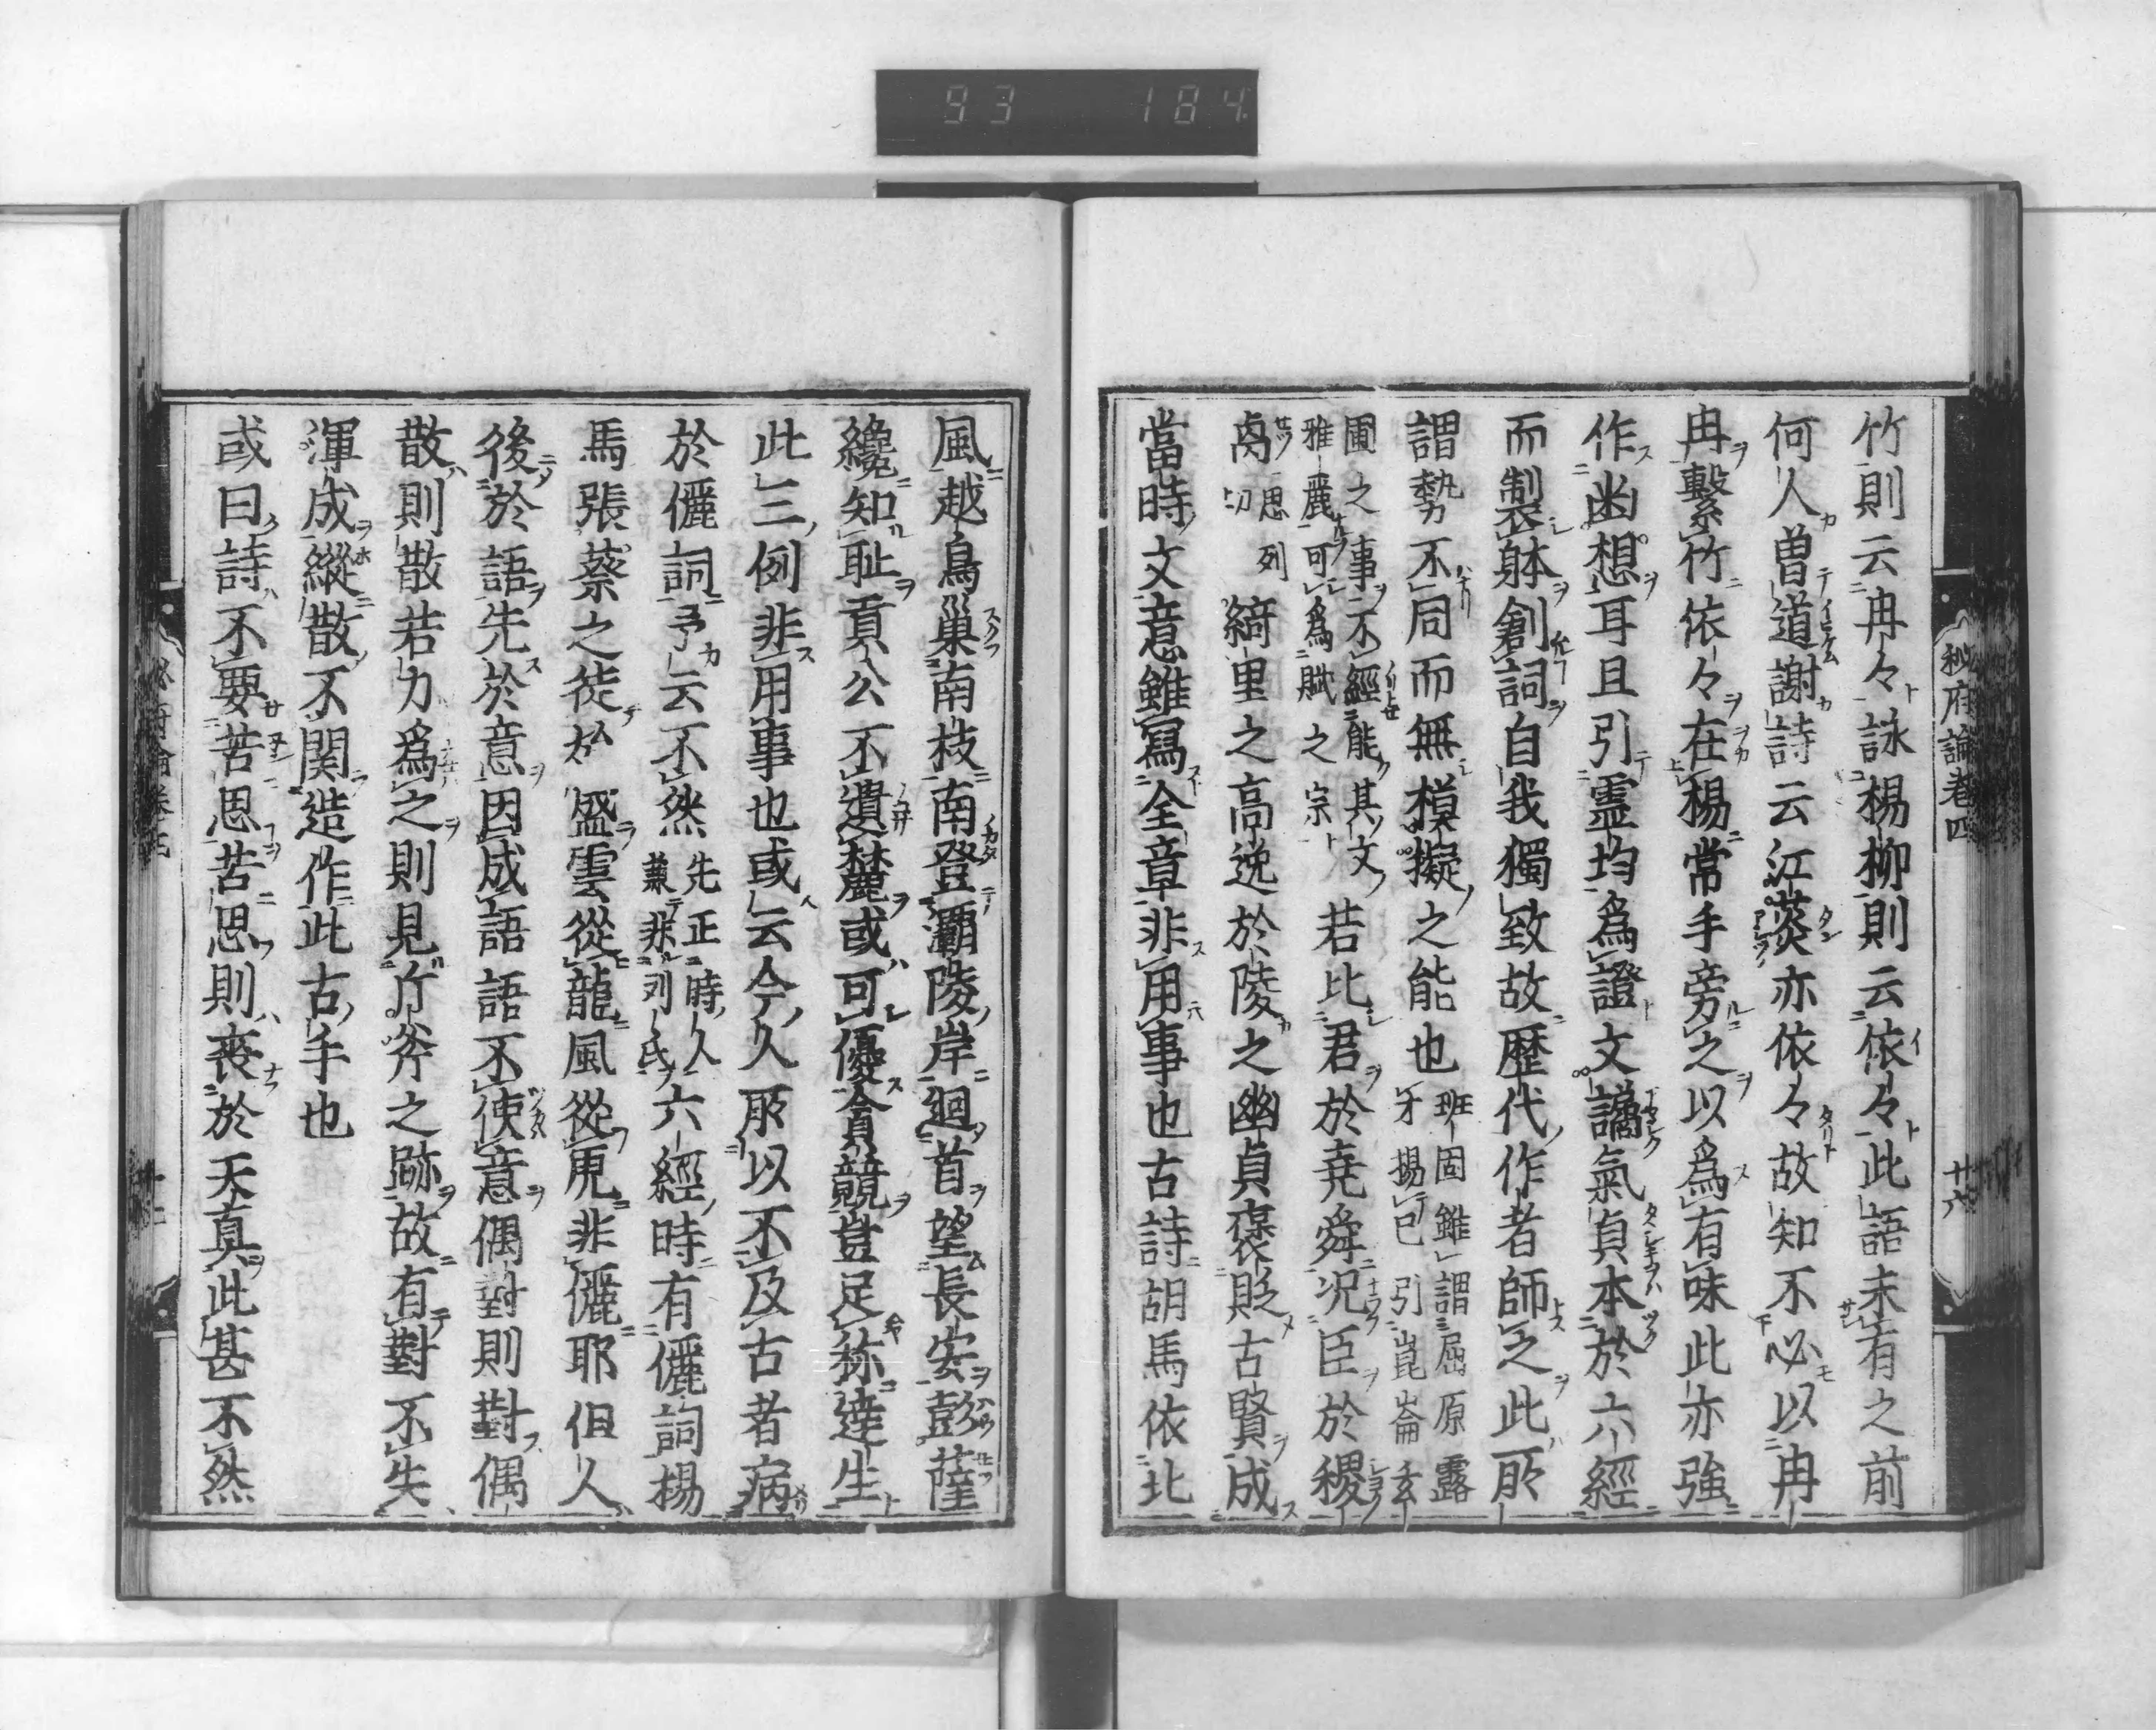 93 184
秘府論巻四 十六
竹則云冉々詠楊柳則云依々此語未有之前
何人曽道謝詩云江菼亦依々故知不必以冉
冉繫竹依々在楊常手旁之以為有味此亦強
作幽想耳且引霊均為證文譎氣貞本於六經
而製躰創詞自我獨致故歴代作者師之此所
謂勢不同而無模擬之能也班固雖謂屈原露
才揚己引崑崙玄
圃之事不經能其文
雅麗可為賦之宗若比君於堯舜况臣於稷
卨思列切綺里之高逸於陵之幽貞褒貶古賢成
當時文意雖寫全章非用事也古詩胡馬依北
風越鳥巢南枝南登灞陵岸迴首望長安彭薩
纔知耻貢公不遺𣫍或可優貪競豈足称達生
此三例非用事也或云今人所以不及古者病
於儷詞予云不然先正時人兼非列氏六經時有儷詞楊
馬張蔡之徒始盛雲從龍風從虎非儷耶但人
後於語先於意因成語語不使意偶對則對偶
散則散若力為之則見斤斧之跡故有對不失
渾成縱散不関造作此古手也
或曰詩不要苦思苦思則喪於天真此甚不然